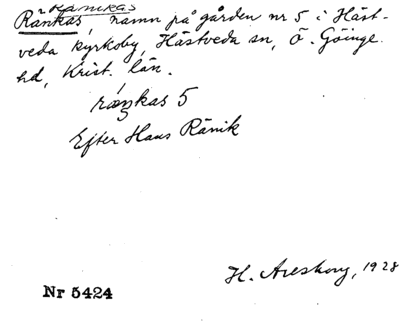 Ränikas
Ränkas, namn på gården nr 5 i Häst-
veda kyrkoby, Hästveda sn, Ö. Göinge
hd, Krist. län.
ränkas 5
Efter Hans Ränik
H. Areskog, 1928
Nr 5424